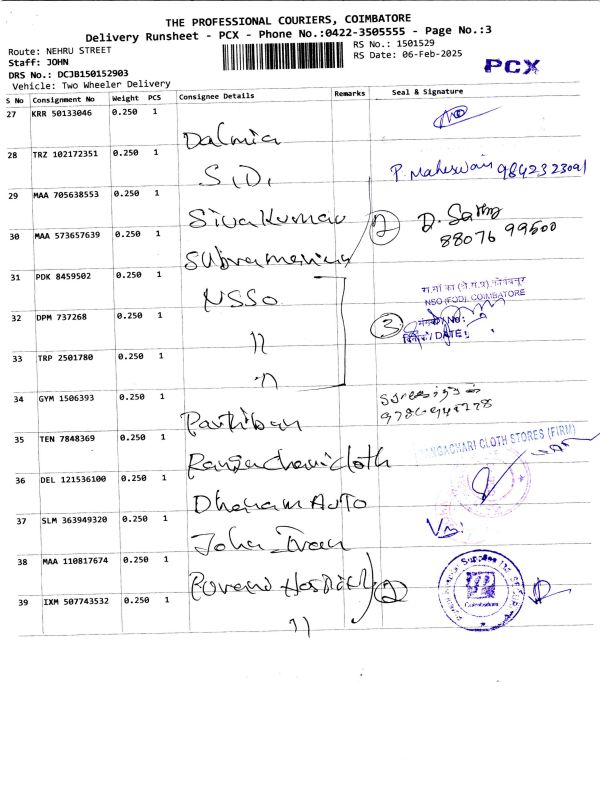 THE PROFESSIONAL COURIERS, COIMBATORE
Delivery Runsheet - PCX - Phone No.:0422-3505555 - Page No.:3
Route: NEHRU STREET
RS No.: 1501529
Staff: JOHN
RS Date: 06-Feb-2025
PCX
DRS No.: DCJB150152903
Vehicle: Two Wheeler Delivery
S No Consignment No Weight PCS Consignee Details Remarks Seal & Signature
27 KRR 50133046 0.250 1 Dalmia
28 TRZ 102172351 0.250 1 S.D. P. Maheswari 9842323091
29 MAA 705638553 0.250 1 Sivakumar
30 MAA 573657639 0.250 1 2 D. Sathy
88076 99500
31 PDK 8459502 0.250 1 NSSO
NSO (FOD), COIMBATORE
32 DPM 737268 0.250 1 11 3 / No:
दिनांक / DATE:
33 TRP 2501780 0.250 1 11
34 GYM 1506393 0.250 1 Parthiban
35 TEN 7848369 0.250 1 Rangachari cloth RANGACHARI CLOTH STORES (FIRM)
36 DEL 121536100 0.250 1 Dhanam Auto
37 SLM 363949320 0.250 1
38 MAA 110817674 0.250 1 Hospital 2
Coimbatore
39 IXM 507743532 0.250 1 11